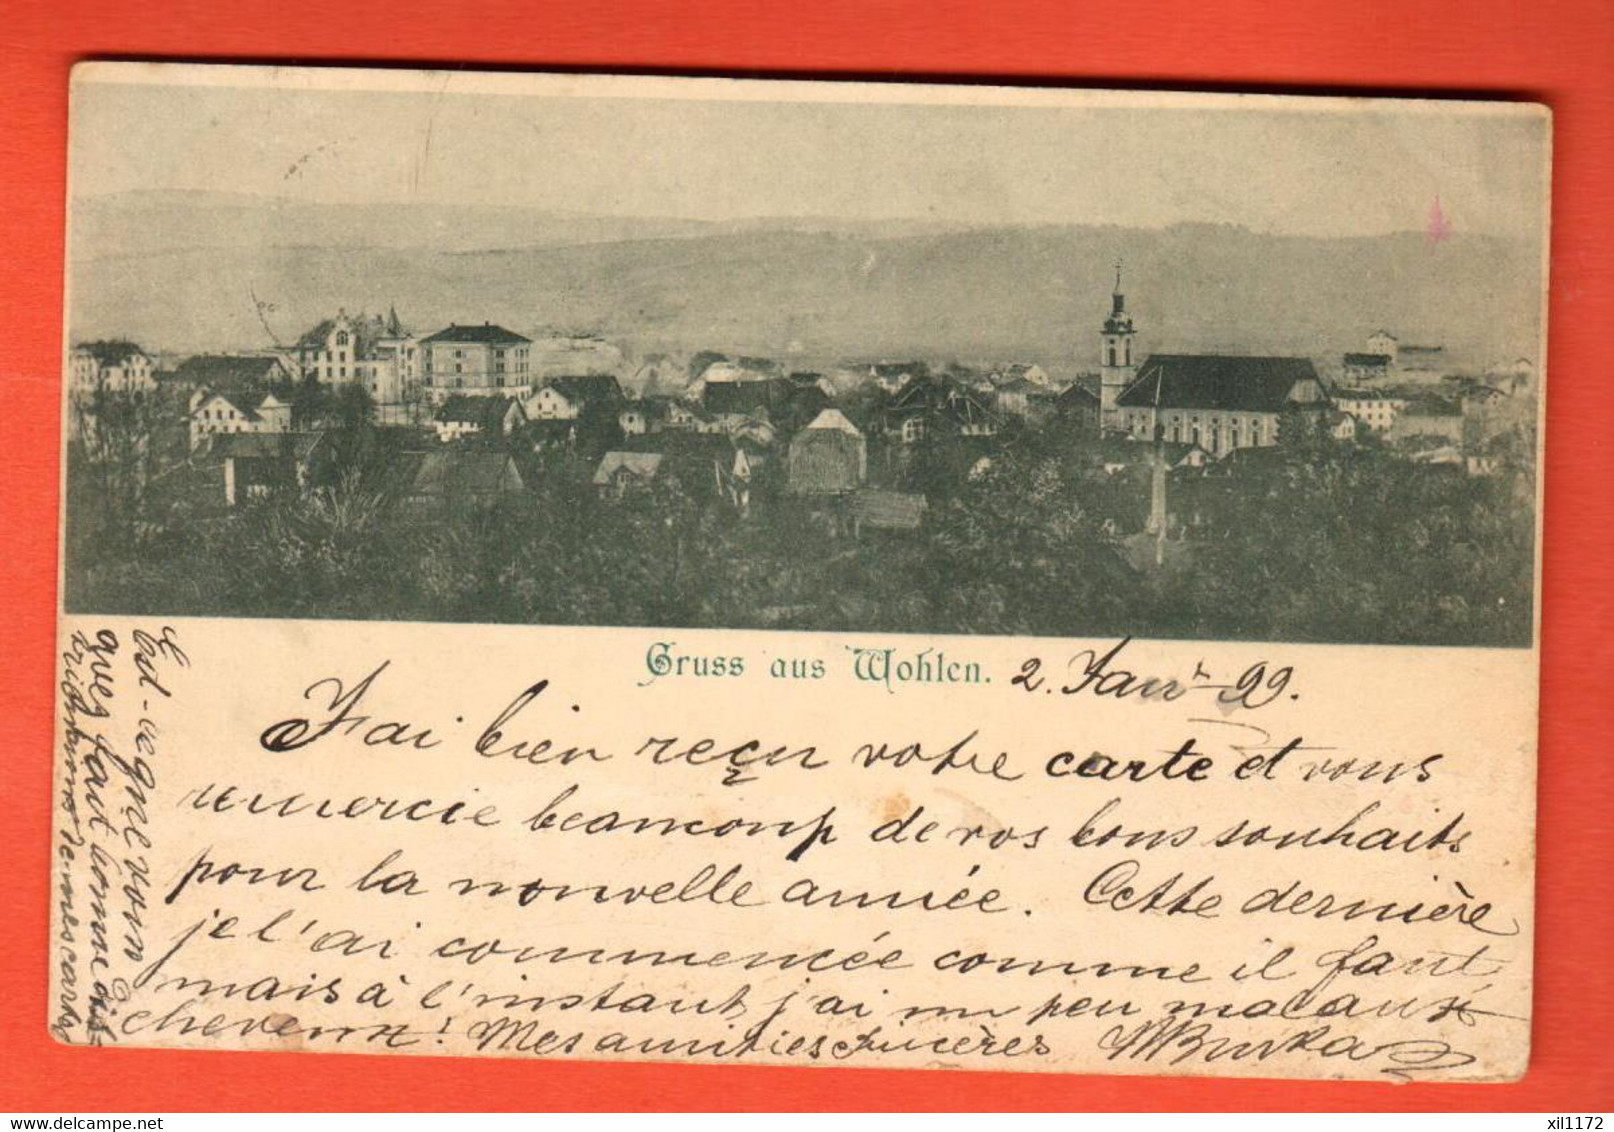 Gruss aus Wohlen. 2. Janr 99.
J'ai bien reçu votre carte et vous
remercie beaucoup de vos bons souhaits
pour la nouvelle année. Cette dernière
je l'ai commencée comme il faut
mais à l'instant j'ai un peu mal aux
cheveux! Mes amitiés sincères
Est-ce que vous
avez faut donné
de mes cartes
delcampe.net
xil1172